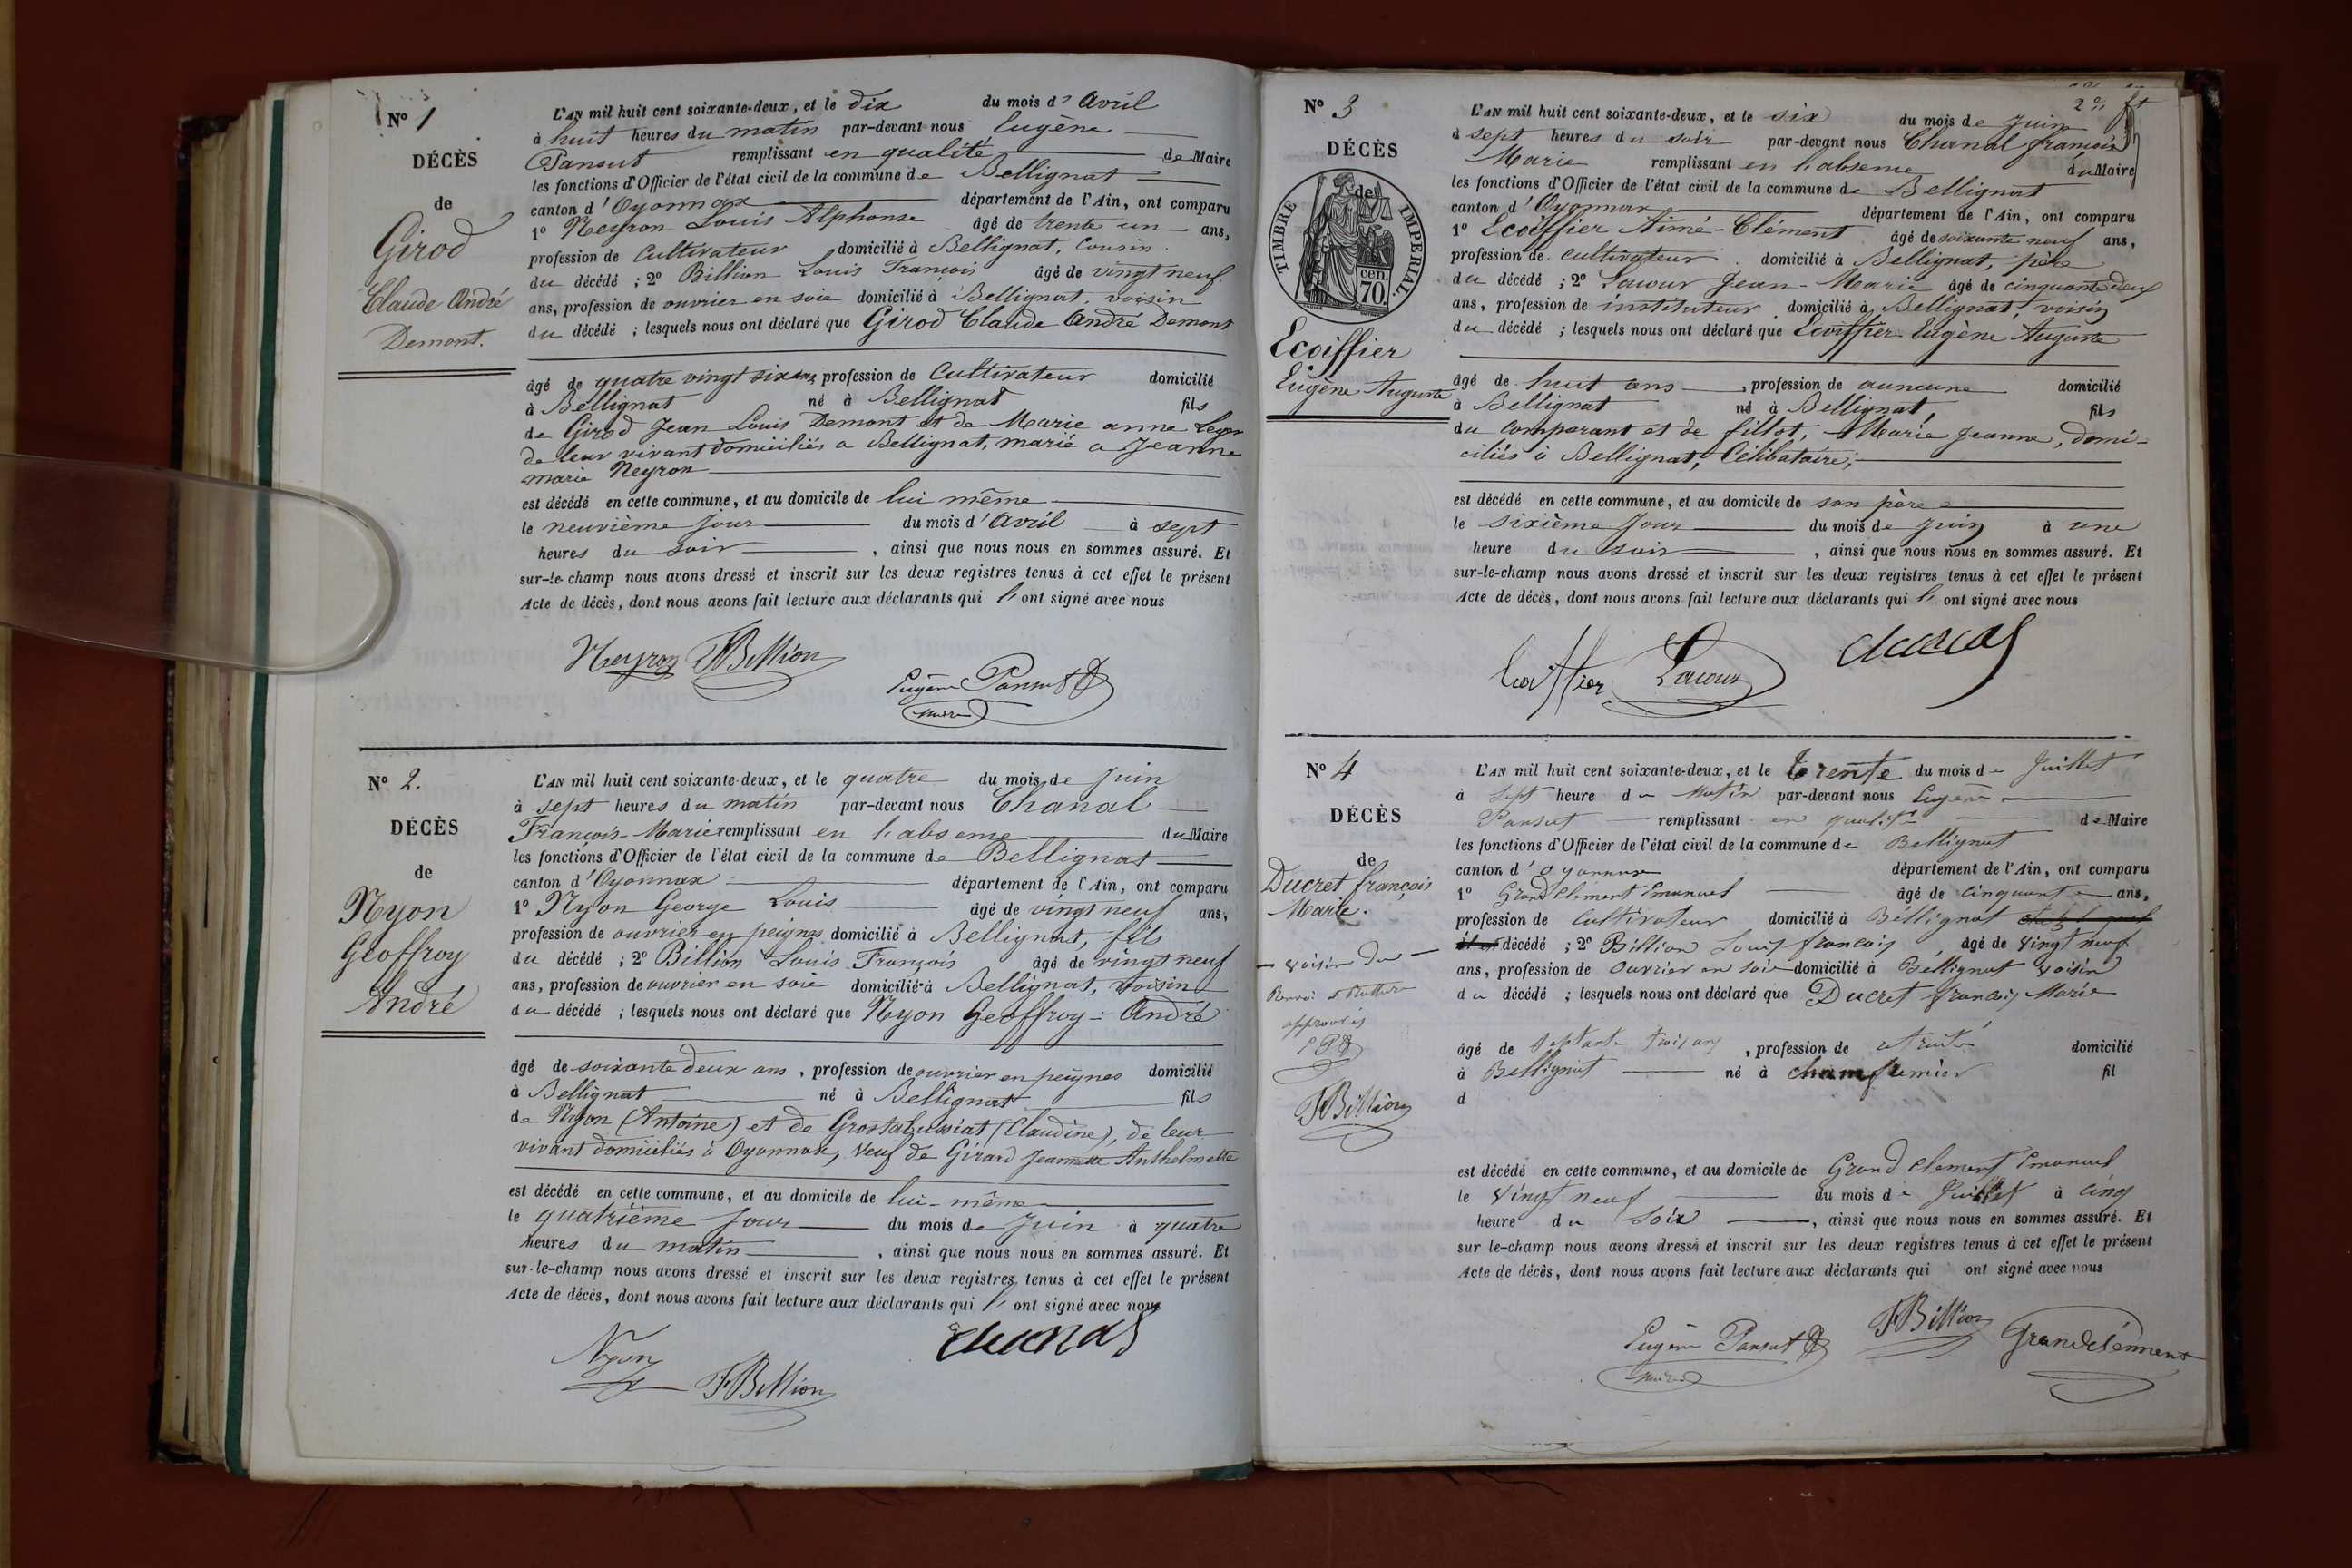 N° 1
DÉCÈS
de
Girod
Claude André
Demont.
L'AN mil huit cent soixante-deux, et le dix du mois d' Avril
à huit heures du matin par-devant nous Eugène
Pansut remplissant en qualité de Maire
les fonctions d'Officier de l'état civil de la commune de Bellignat
canton d' Oyonnax département de l'Ain, ont comparu
1° Neyron Louis Alphonse âgé de trente un ans,
profession de Cultivateur domicilié à Bellignat, Cousin.
du décédé ; 2° Billion Louis François âgé de vingt neuf
ans, profession de ouvrier en soie domicilié à Bellignat, voisin
du décédé ; lesquels nous ont déclaré que Girod Claude André Demont
âgé de quatre vingt six ans profession de Cultivateur domicilié
à Bellignat né à Bellignat fils
de Girod Jean Louis Demont et de Marie anne
de leur vivant domiciliés a Bellignat, marié a Jeanne
marie Neyron
est décédé en cette commune, et au domicile de lui même
le neuvième jour du mois d' Avril à sept
heures du soir , ainsi que nous nous en sommes assuré. Et
sur-le-champ nous avons dressé et inscrit sur les deux registres tenus à cet effet le présent
Acte de décès, dont nous avons fait lecture aux déclarants qui l' ont signé avec nous
Neyron FBillion
Eugène Pansut
maire
N° 2.
DÉCÈS
de
Nyon
Geoffroy
André
L'AN mil huit cent soixante-deux, et le quatre du mois de Juin
à sept heures du matin par-devant nous Chanal
François-Marie remplissant en l'absence du Maire
les fonctions d'Officier de l'état civil de la commune de Bellignat
canton d' Oyonnax département de l'Ain, ont comparu
1° Nyon George Louis âgé de vingt neuf ans,
profession de ouvrier en peignes domicilié à Bellignat, fils
du décédé ; 2° Billion Louis François âgé de vingt neuf
ans, profession de ouvrier en soie domicilié à Bellignat, voisin
du décédé ; lesquels nous ont déclaré que Nyon Geoffroy-André
âgé de soixante deux ans , profession de ouvrier en peignes domicilié
à Bellignat né à Bellignat fils
de Nyon (Antoine) et de Grostabussiat (Claudine), de leur
vivant domiciliés à Oyonnax, Veuf de Girard Jeannette Anthelmette
est décédé en cette commune, et au domicile de lui-même
le quatrième jour du mois de Juin à quatre
heures du matin , ainsi que nous nous en sommes assuré. Et
sur-le-champ nous avons dressé et inscrit sur les deux registres tenus à cet effet le présent
Acte de décès, dont nous avons fait lecture aux déclarants qui l' ont signé avec nous
Nyon FBillion Chanal
N° 3
DÉCÈS
de
TIMBRE IMPERIAL.
cen.
70.
Ecoiffier
Eugène Auguste
L'AN mil huit cent soixante-deux, et le six du mois de Juin
à sept heures du soir par-devant nous Chanal françois
Marie remplissant en l'absence du Maire
les fonctions d'Officier de l'état civil de la commune de Bellignat
canton d' Oyonnax département de l'Ain, ont comparu
1° Ecoiffier Aimé-Clément âgé de soixante neuf ans,
profession de cultivateur domicilié à Bellignat, père
du décédé ; 2° Lacour Jean-Marie âgé de cinquante deux
ans, profession de instituteur domicilié à Bellignat, voisin
du décédé ; lesquels nous ont déclaré que Ecoiffier Eugène Auguste
âgé de huit ans , profession de auncune domicilié
à Bellignat né à Bellignat, fils
du Comparant et de fillot, Marie Jeanne, domi-
ciliés à Bellignat, Célibataire;
est décédé en cette commune, et au domicile de son père
le sixième Jour du mois de Juin à une
heure du soir , ainsi que nous nous en sommes assuré. Et
sur-le-champ nous avons dressé et inscrit sur les deux registres tenus à cet effet le présent
Acte de décès, dont nous avons fait lecture aux déclarants qui l' ont signé avec nous
Ecoiffier Lacour Chanal
N° 4
DÉCÈS
de
Ducret françois
Marie.
voisin du
Renvoi et Rature
approuvés
E P
FBillion
L'AN mil huit cent soixante-deux, et le trente du mois de Juillet
à sept heure du Matin par-devant nous Eugène
Pansut remplissant en qualité de Maire
les fonctions d'Officier de l'état civil de la commune de Bellignat
canton d' Oyonnax département de l'Ain, ont comparu
1° Grand Clément Emanuel âgé de Cinquante ans,
profession de Cultivateur domicilié à Bellignat
décédé ; 2° Billion Louis francois âgé de Vingt neuf
ans, profession de Ouvrier en soie domicilié à Bellignat voisin
du décédé ; lesquels nous ont déclaré que Ducret francois Marie
âgé de septante trois ans , profession de retraité domicilié
à Bellignat né à champfremier fil
d
est décédé en cette commune, et au domicile de Grand Clement Emanuel
le Vingt neuf du mois de Juillet à Cinq
heure du Soir , ainsi que nous nous en sommes assuré. Et
sur le-champ nous avons dressé et inscrit sur les deux registres tenus à cet effet le présent
Acte de décès, dont nous avons fait lecture aux déclarants qui ont signé avec nous
Eugène Pansut FBillion Grandclément
maire